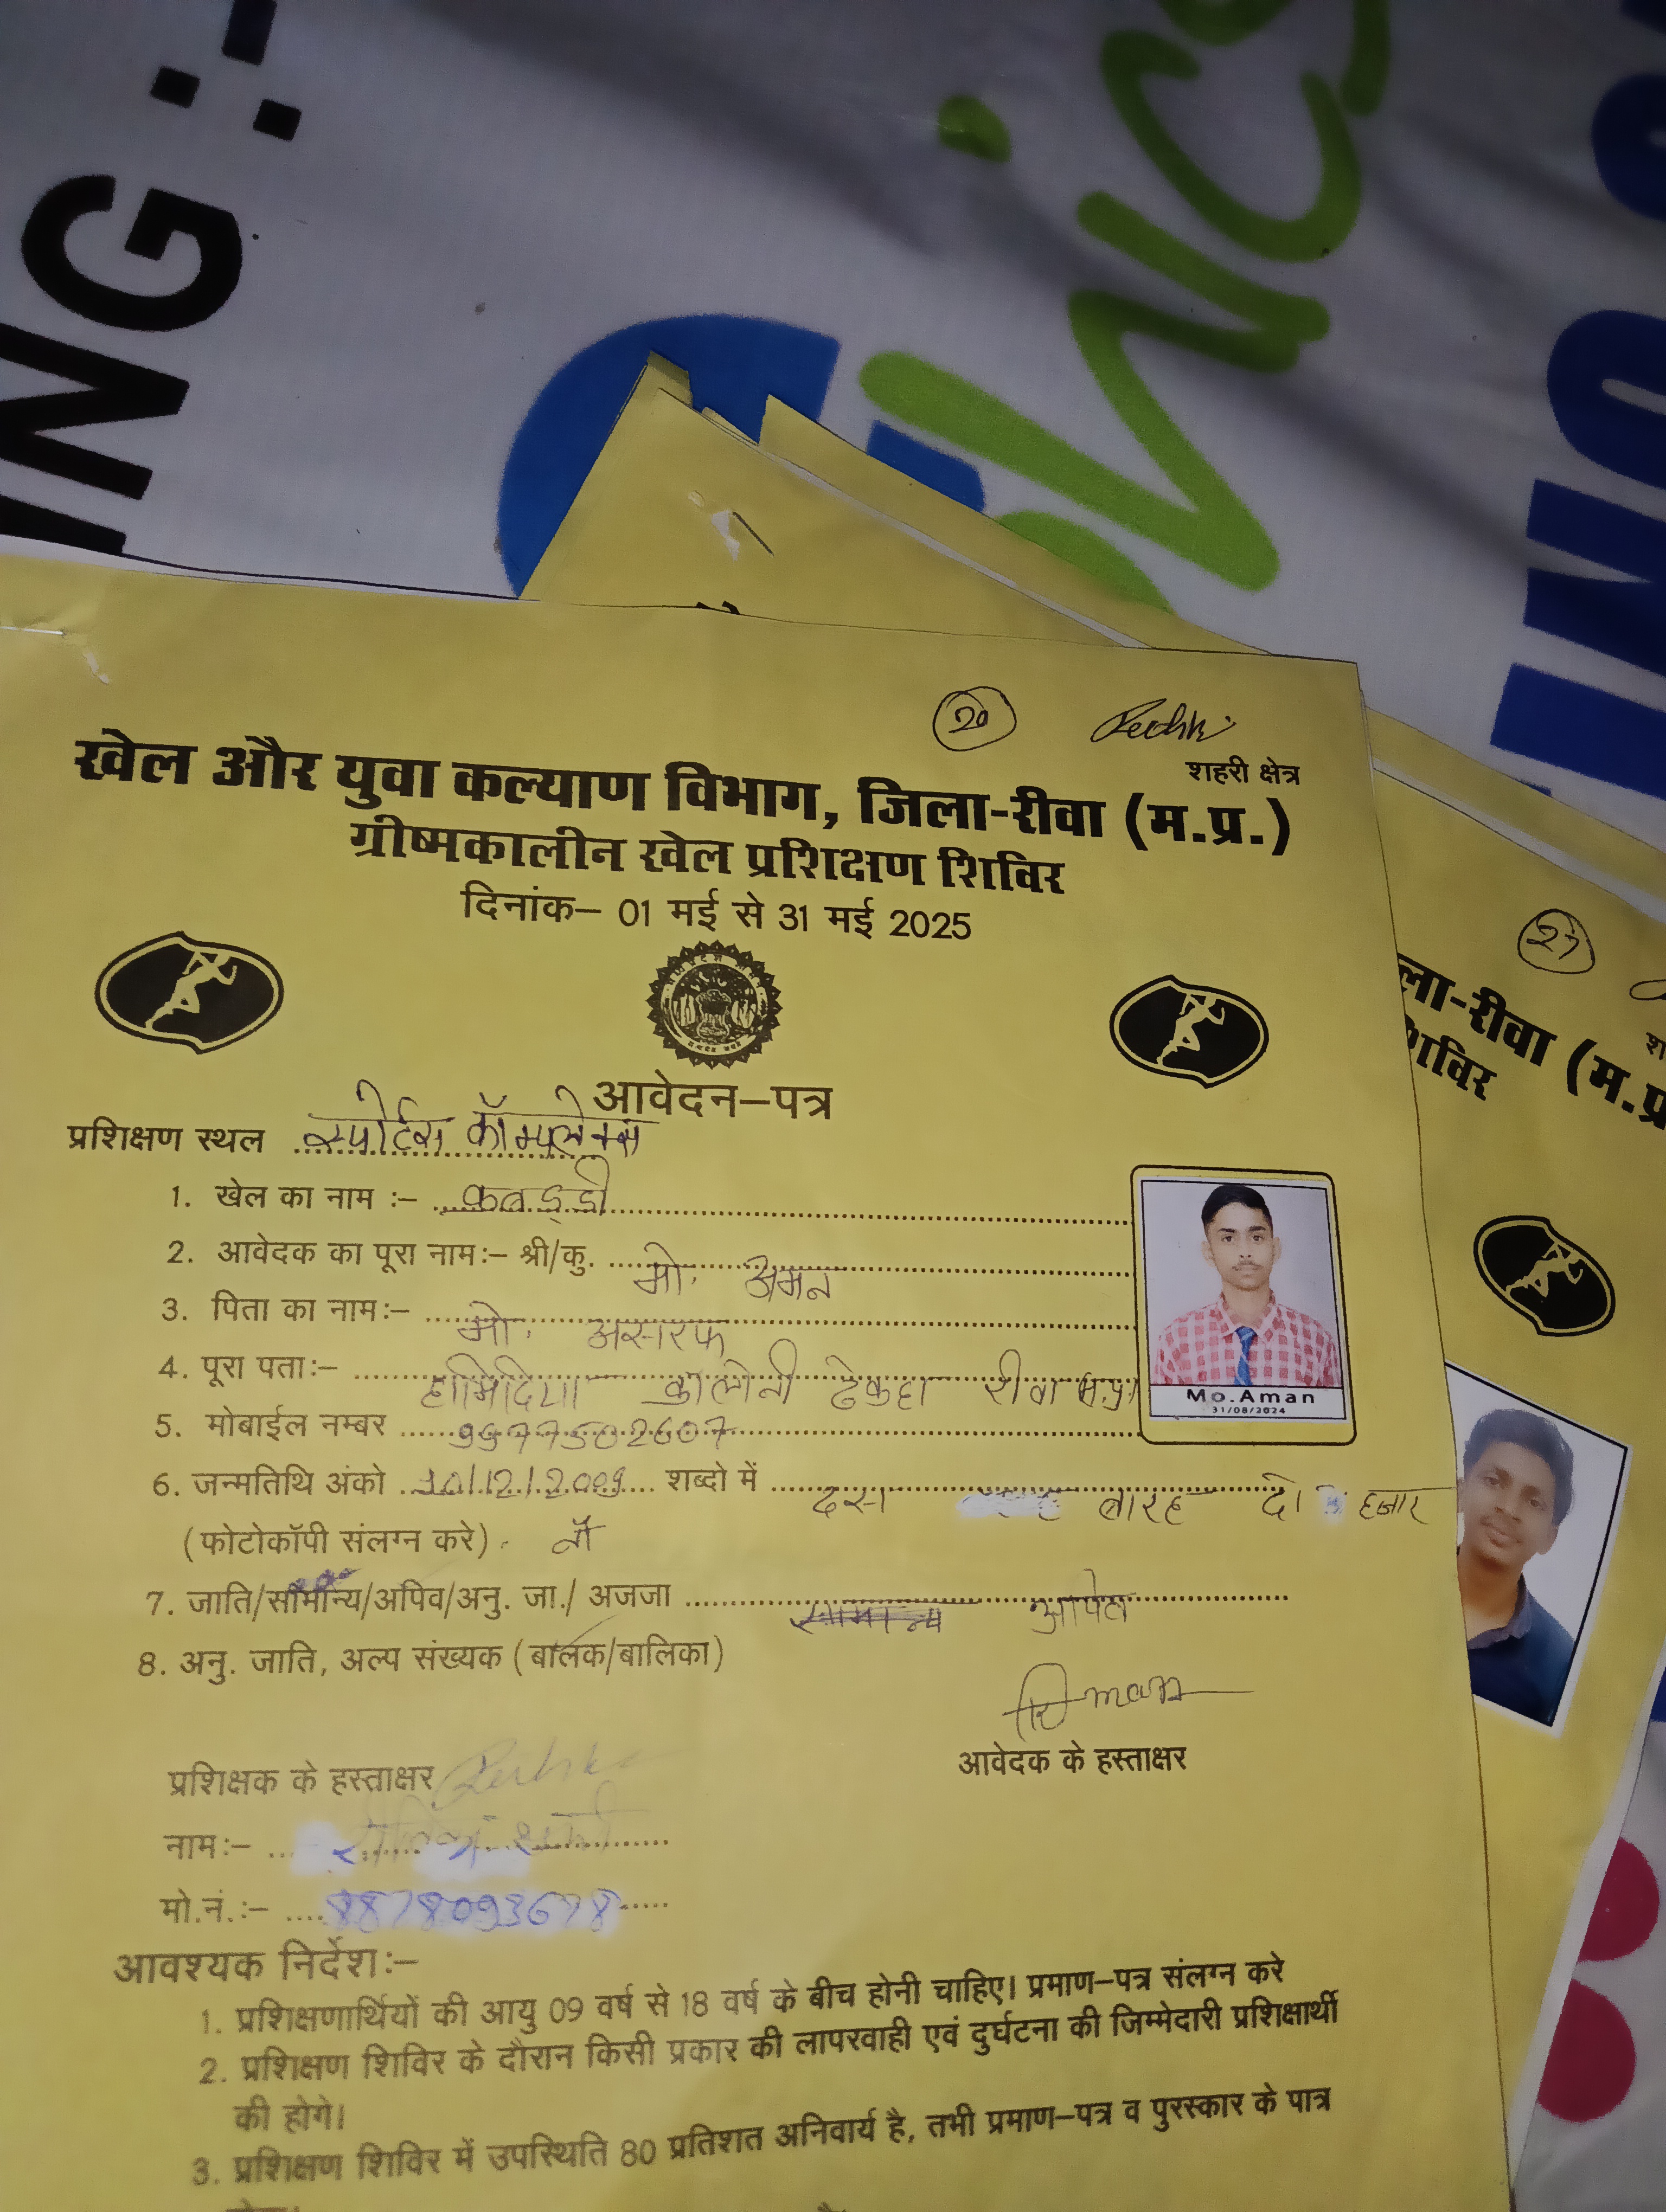 NG :-
20
शहरी क्षेत्र
खेल और युवा कल्याण विभाग, जिला-रीवा (म.प्र.)
ग्रीष्मकालीन खेल प्रशिक्षण शिविर
दिनांक– 01 मई से 31 मई 2025
आवेदन–पत्र
प्रशिक्षण स्थल स्पोर्टस कॉम्पलेक्स
1. खेल का नाम :– कबड्डी
2. आवेदक का पूरा नामः– श्री/कु. मो. अमन
3. पिता का नामः– मो. असरफ
4. पूरा पताः– हामिदिया कालोनी ढेकहा रीवा म.प्र.
5. मोबाईल नम्बर 9977502607
6. जन्मतिथि अंको 10/12/2009 शब्दो में दस बारह दो हजार
(फोटोकॉपी संलग्न करे) नौ
7. जाति/सामान्य/अपिव/अनु. जा./ अजजा
8. अनु. जाति, अल्प संख्यक (बालक/बालिका)
Mo.Aman
31/08/2024
आवेदक के हस्ताक्षर
प्रशिक्षक के हस्ताक्षर
नामः–
मो.नं.:– 8878093678
आवश्यक निर्देशः–
1. प्रशिक्षणार्थियों की आयु 09 वर्ष से 18 वर्ष के बीच होनी चाहिए। प्रमाण–पत्र संलग्न करे
2. प्रशिक्षण शिविर के दौरान किसी प्रकार की लापरवाही एवं दुर्घटना की जिम्मेदारी प्रशिक्षार्थी
की होगे।
3. प्रशिक्षण शिविर में उपस्थिति 80 प्रतिशत अनिवार्य है, तभी प्रमाण–पत्र व पुरस्कार के पात्र
27
ला-रीवा (म.प्र
शिविर